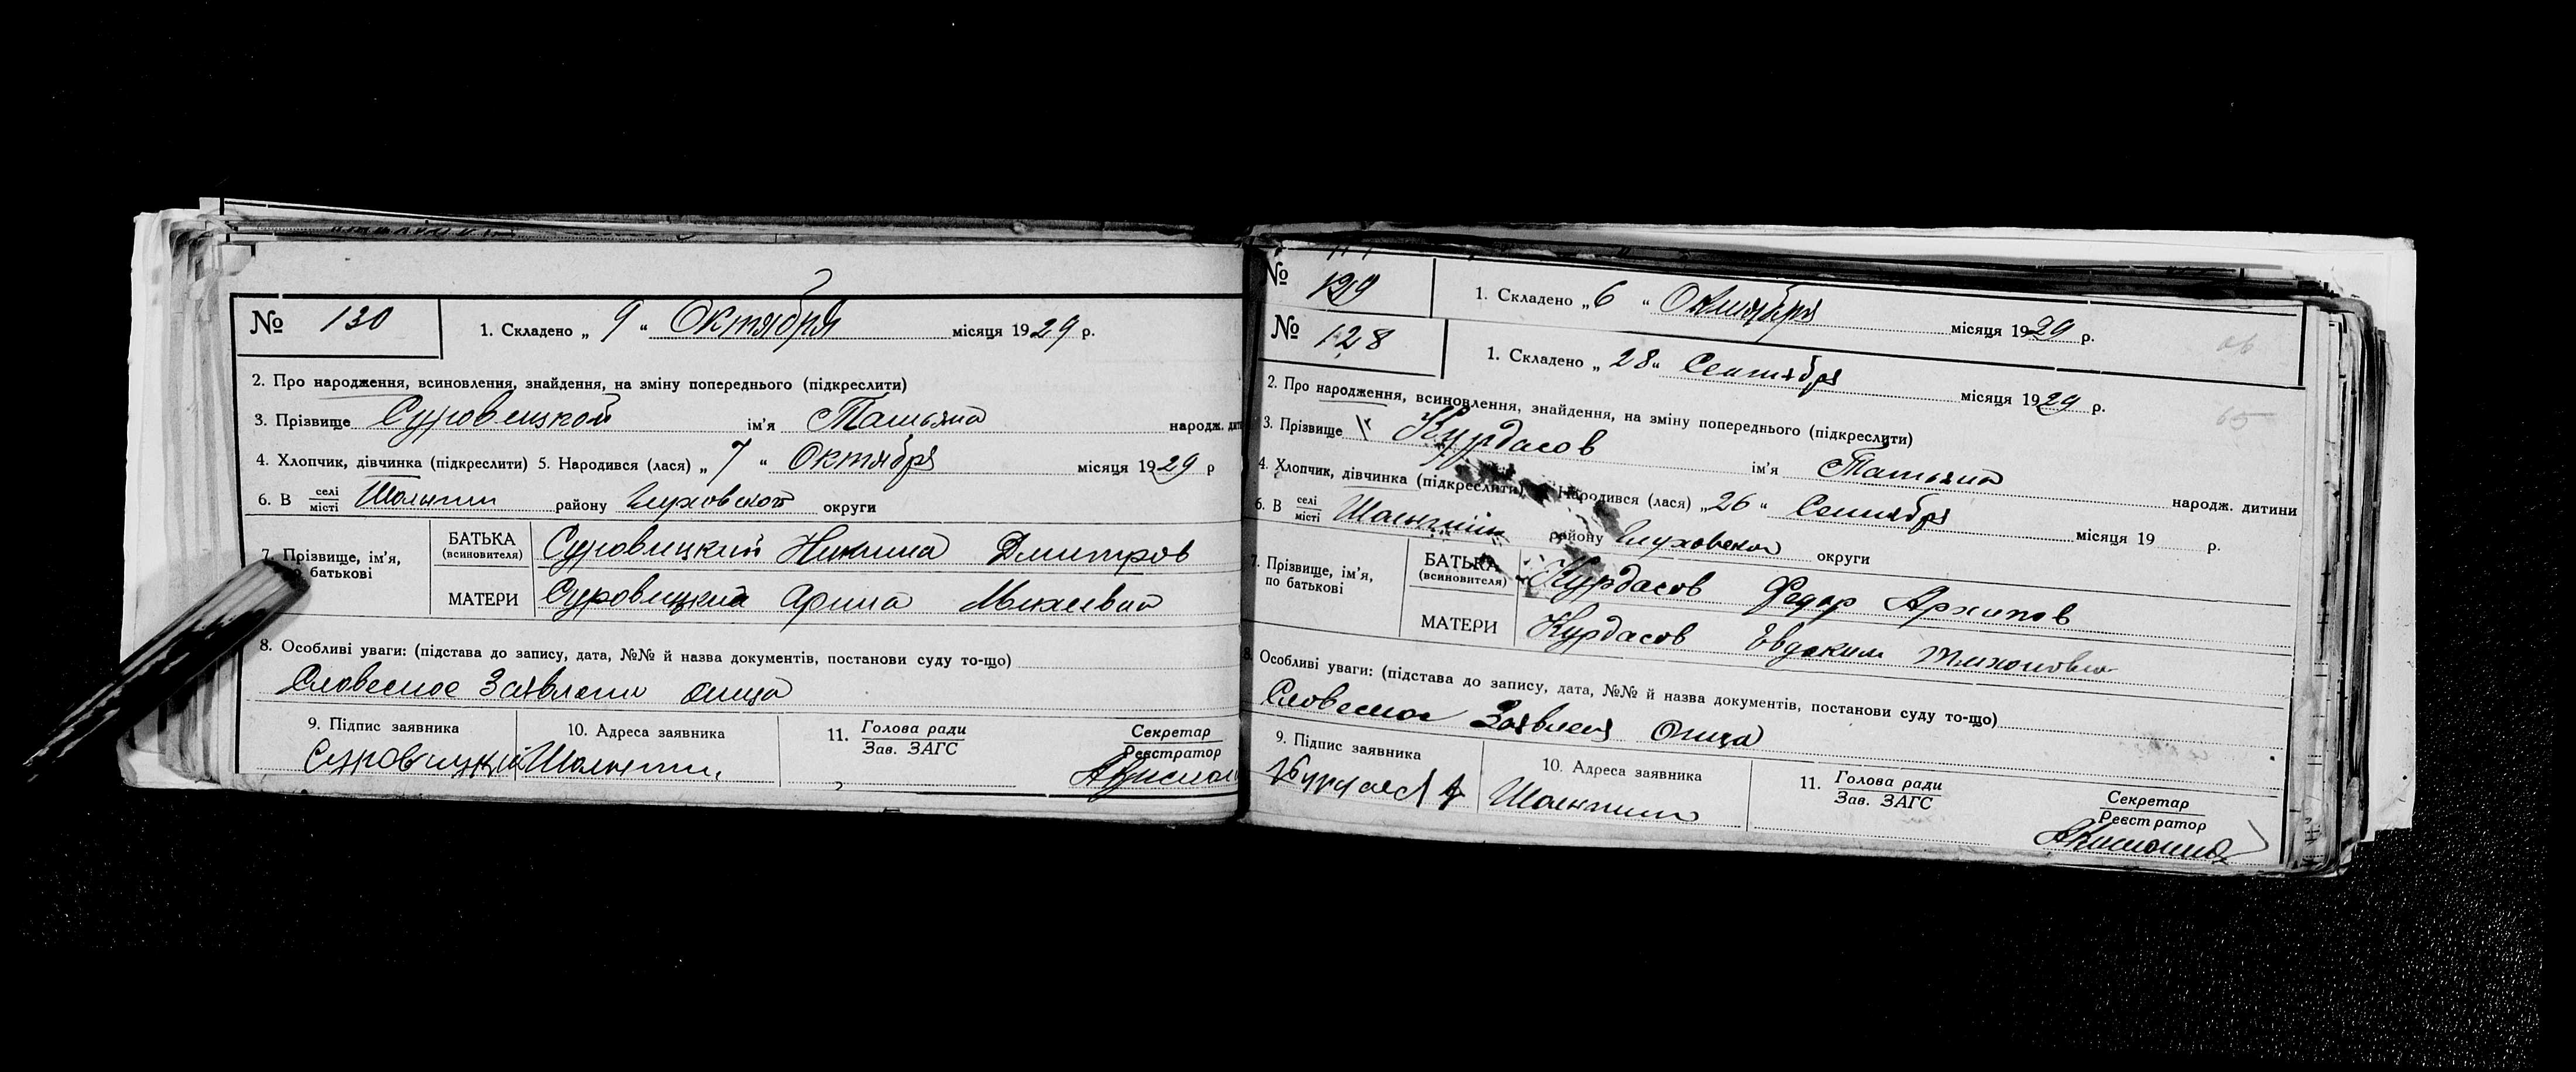 № 130 1. Складено „ 9 “ Октября місяця 1929 р.
2. Про народження, всиновлення, знайдення, на зміну попереднього (підкреслити)
3. Прізвище Суровицкой ім’я Татьяна народж. дит
4. Хлопчик, дівчинка (підкреслити) 5. Народився (лася) „ 7 “ Октября місяця 1929 р
6. В селі місті Шалыгин району Глуховской округи
7. Прізвище, ім’я, батькові
БАТЬКА (всиновителя) Суровицкий Никита Дмитров
МАТЕРИ Суровицкая Арина Михеевна
8. Особливі уваги: (підстава до запису, дата, №№ й назва документів, постанови суду то-що)
Словесное Заявлени отца
9. Підпис заявника 10. Адреса заявника 11. Голова ради Зав. ЗАГС Секретар Реєстратор
Суровицкий Шалыгин
№ 129 1. Складено „ 6 “ Октября місяця 1929 р.
№ 128 1. Складено „ 28 “ Сентября місяця 1929 р.
66
65
2. Про народження, всиновлення, знайдення, на зміну попереднього (підкреслити)
3. Прізвище Курдасов ім’я Татьяна народж. дитини
4. Хлопчик, дівчинка (підкреслити) Народився (лася) „ 26 “ Сентября місяця 19 р.
6. В селі місті Шалыгин району Глуховской округи
7. Прізвище, ім’я, по батькові
БАТЬКА (всиновителя) Курдасов Федор Архипов
МАТЕРИ Курдасов Евдоким Тихоновна
8. Особливі уваги: (підстава до запису, дата, №№ й назва документів, постанови суду то-що)
Словесное Заявлен Отца
9. Підпис заявника 10. Адреса заявника 11. Голова ради Зав. ЗАГС Секретар Реєстратор
Шалыгин